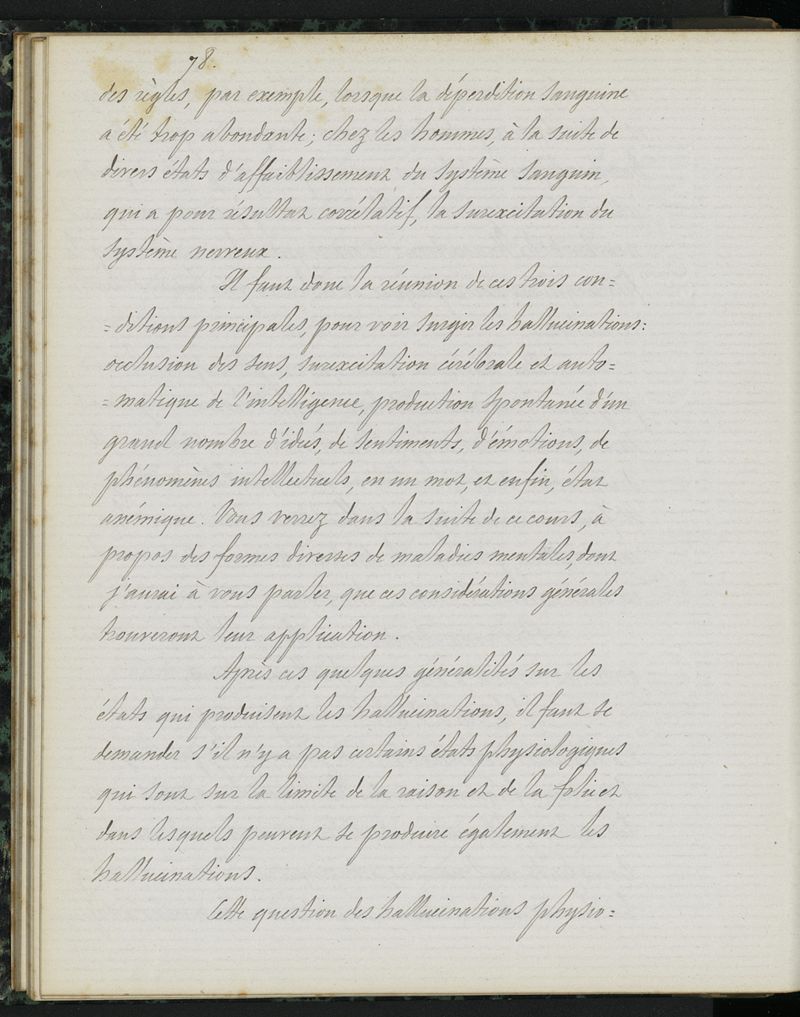 78.
des règles, par exemple, lorsque la déperdition sanguine
a été trop abondante; chez les hommes, à la suite de
divers états d'affaiblissement du système sanguin,
qui a pour résultat corrélatif, la surexcitation du
système nerveux.
Il faut donc la réunion de ces trois con=
=ditions principales, pour voir surgir les hallucinations:
occlusion des sens, surexcitation cérébrale et auto=
=matique de l'intelligence, production spontanée d'un
grand nombre d'idées, de sentiments, d'émotions, de
phénomènes intellectuels, en un mot, et enfin, état
anémique. Vous verrez dans la suite de ce cours, à
propos des formes diverses de maladies mentales, dont
j'aurai à vous parler, que ces considérations générales
trouveront leur application.
Après ces quelques généralités sur les
états qui produisent les hallucinations, il faut se
demander s'il n'y a pas certains états physiologiques
qui sont sur la limite de la raison et de la folie et
dans lesquels peuvent se produire également les
hallucinations.
Cette question des hallucinations physio=